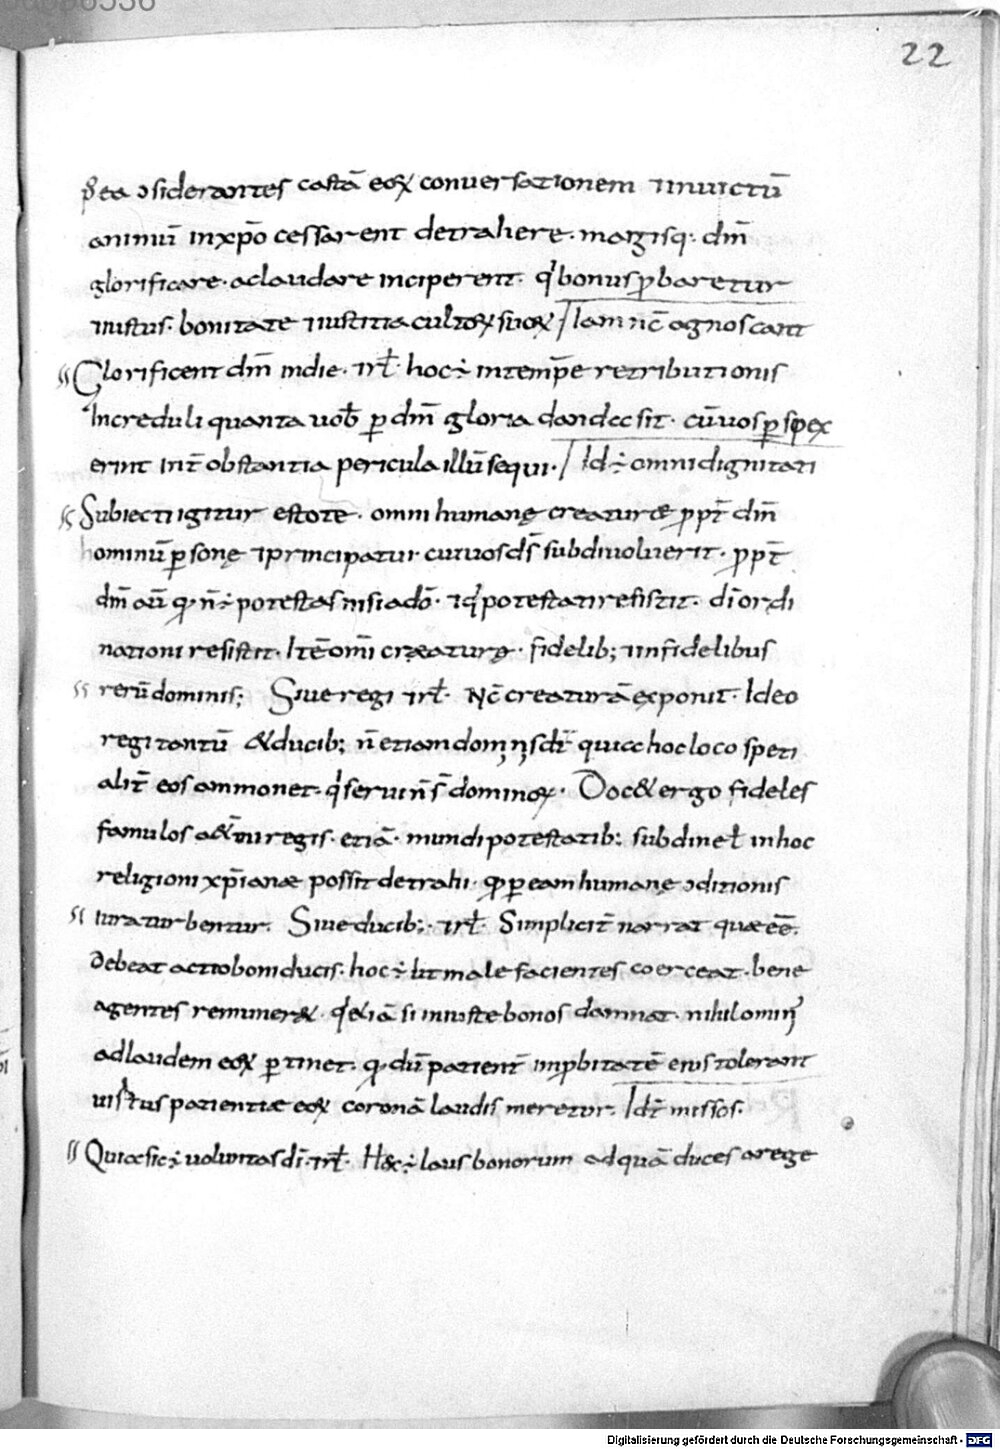 22
p̄ ea ɔsiderantes castā eoꝝ conuersationem ⁊ inuictū
animū in xp̄o cessarent detrahere. magisq; dm̄
glorificare. ac laudare inciperent. qđ bonus ꝓbaretur
⁊ iustus. bonitate ⁊ iustitia cultoꝝ suoꝝ / Iam nc̄ agnoscant
Glorificent dm̄ in die. ⁊ rł. hoc ÷ in temp̄e retributionis
Increduli quanta uob̄ ꝑ dm̄ gloria danda sit. cū uos ꝑspex
erint int̄ obstantia pericula illū sequi. / Id ÷ omni dignitati
Subiecti igitur estote. omni humanę creaturæ ꝓpt̄ dm̄
hominū ꝑsonę ⁊ principatui cui uos ds̄ subdi uoluerit. ꝓpt̄
dm̄ aū q. n̄ ÷ potestas nisi a dō. ⁊ q potestati resistit. dī ordi
nationi resistit. Itē om̄i creaturę. fidelib; ⁊ infidelibus
rerū dominis; Siue regi ⁊ rł. Nc̄ creaturā exponit. Ideo
regi tantū & ducib; n̄ etiam dominis dr̄ quia hoc loco speti
alit̄ eos ammonet. qđ serui n̄ s̄ dominoꝝ. Doc& ergo fideles
famulos aet̄ni regis. etiā. mundi potestatib: subdi nełin hoc
religioni xp̄ianæ possit detrahi. q ꝑ eam humanę ɔditionis
iura turbentur. Siue ducib;. ⁊ rł. Simplicit̄ narrat quæ ēē
debeat actio boni ducis. hoc ÷ ut male facientes coerceat. bene
agentes remuner&. qđ etiā si iniuste bonos damnat. nihilomin'
ad laudem eoꝝ ꝑtinet. q dū patient̄ imꝓbitatē eius tolerant
uirtus patientiæ eoꝝ coronā laudis meretur. Id ÷ missos.
Quia sic ÷ uoluntas dī. ⁊ rł. H& ÷ laus bonorum ad quā duces a rege
Digitalisierung gefördert durch die Deutsche Forschungsgemeinschaft - DFG